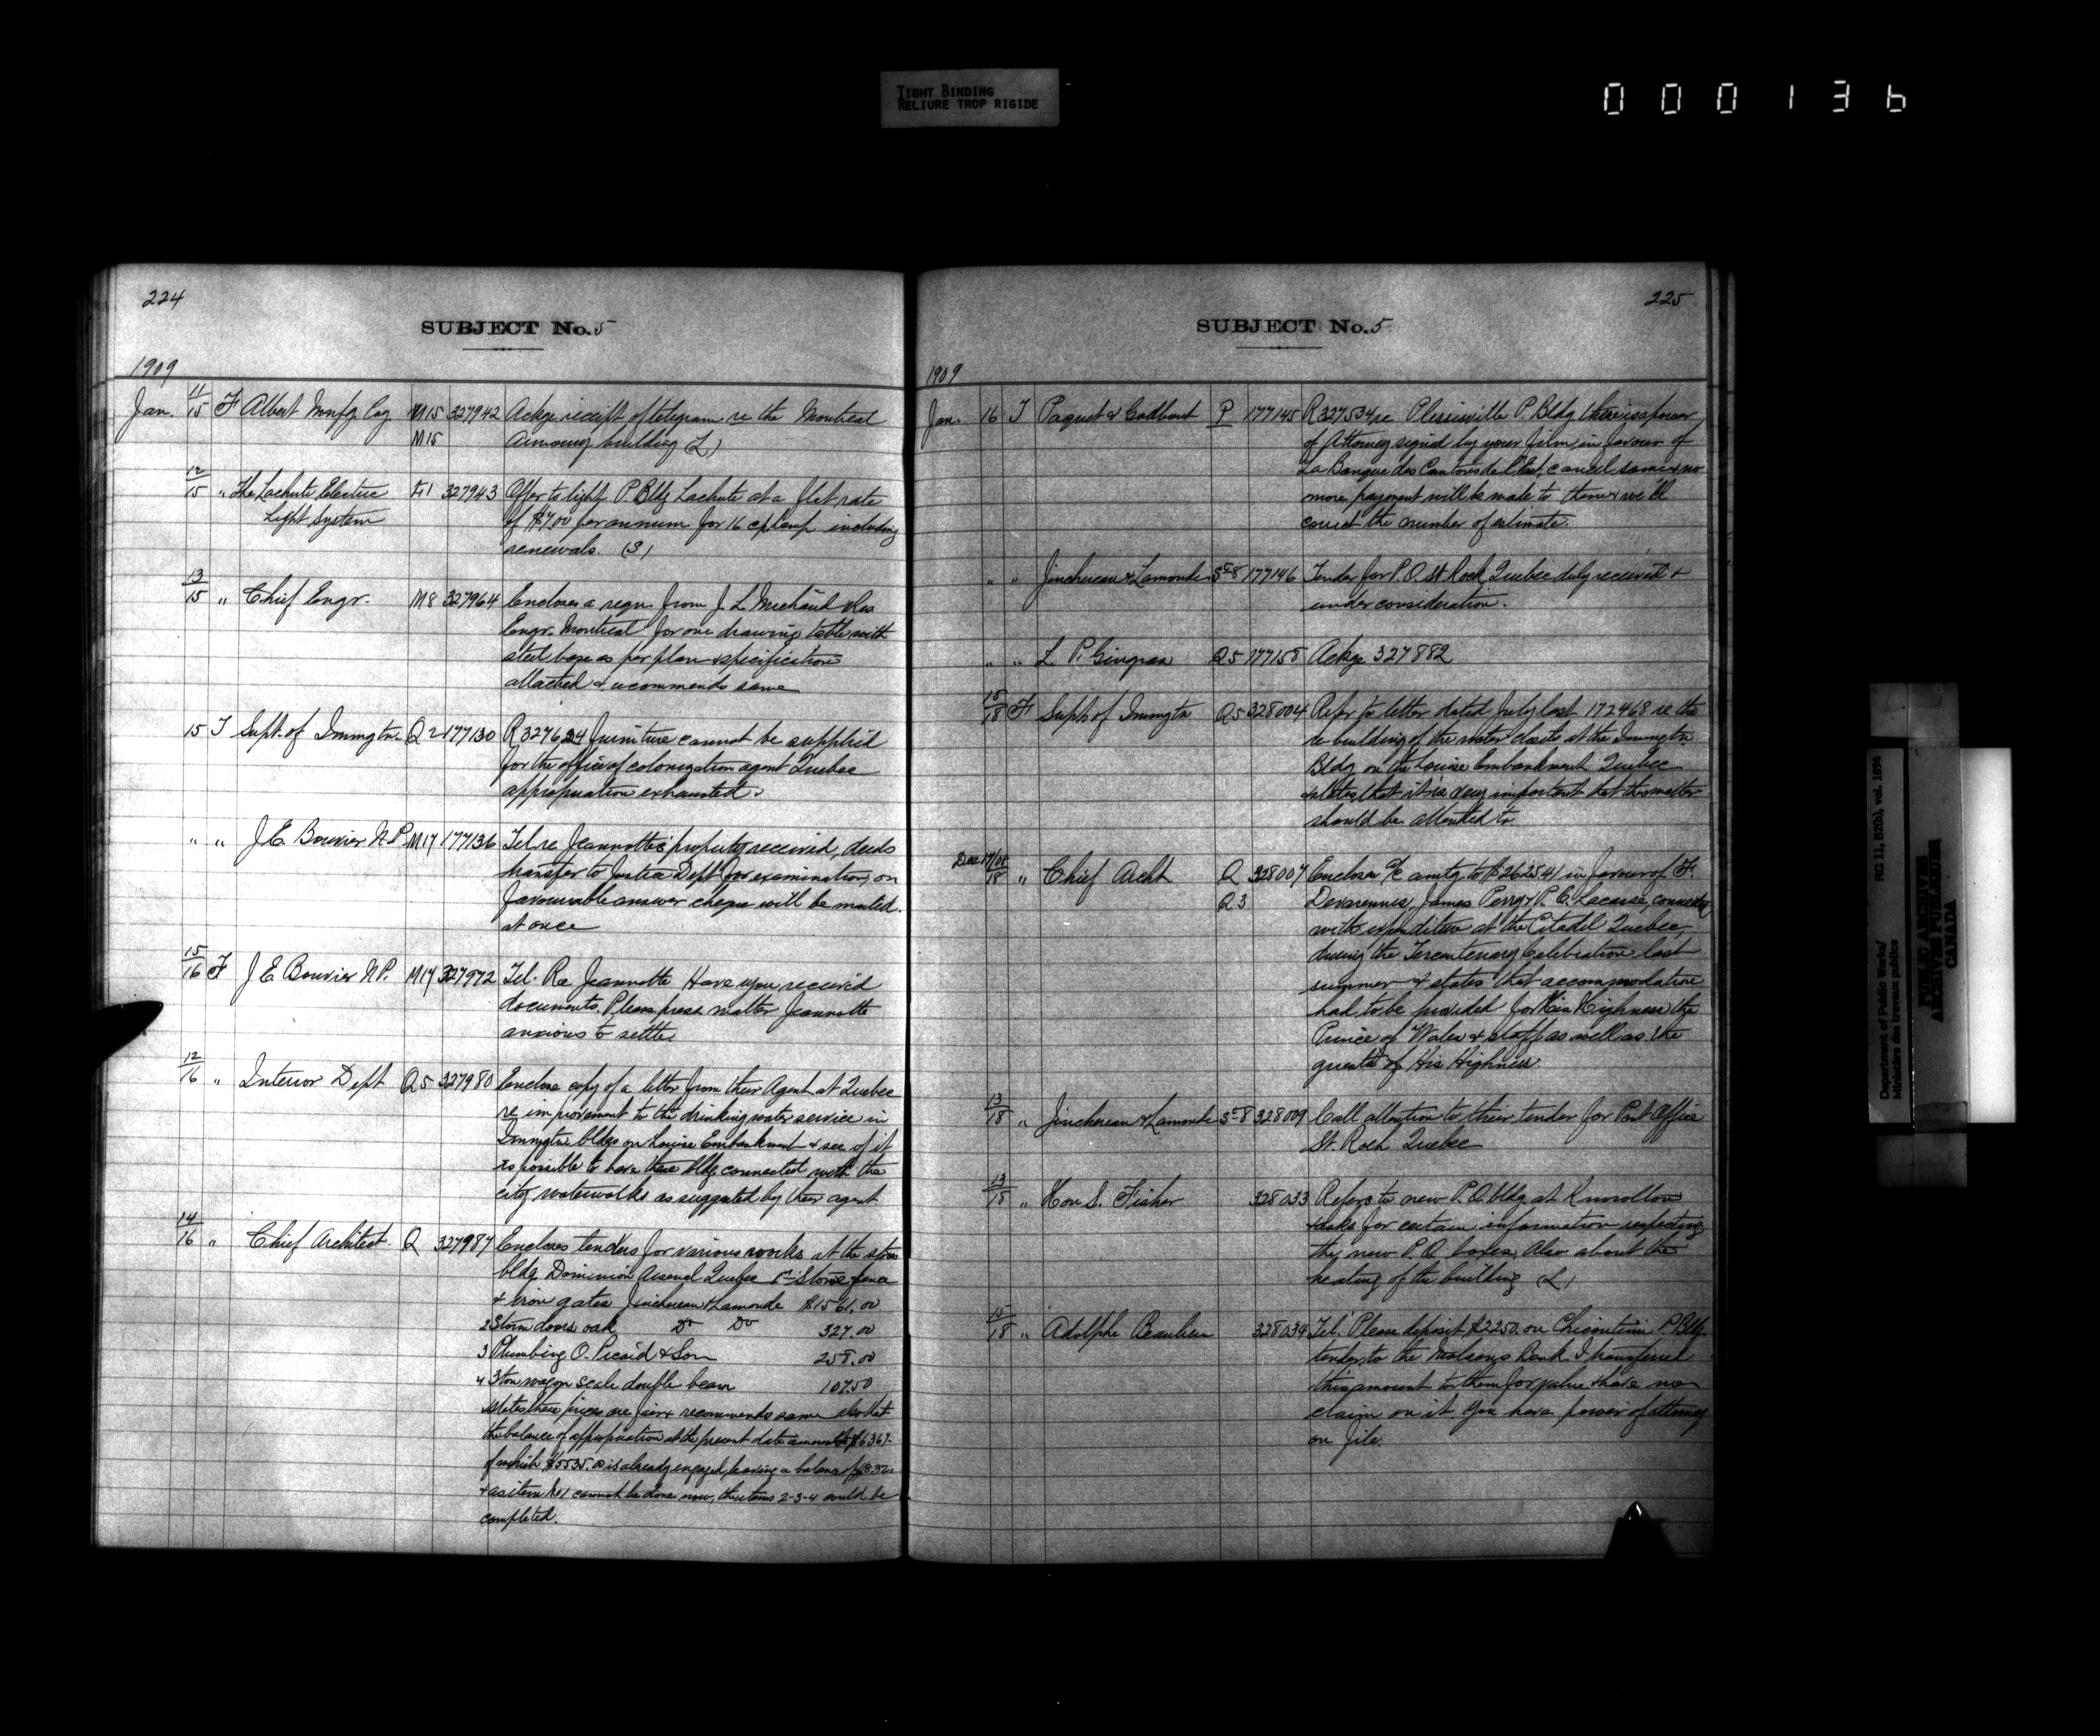 TIGHT BINDING
RELIURE TROP RIGIDE
000136
224
SUBJECT No. 5
1909
Jan. 11/15 F Albert Manfg Coy M15 327942 Ackge receipt of telegram re the Montreal
M15 Armoury building (L)
12/15 " The Lachute Electric L1 327943 Offer to light P. Bldg Lachute at a flat rate
Light System of $7.00 per annum for 16 cp lamp including
renewals. (3)
13/15 " Chief Engr. M8 327964 Encloses a reqn from J. L. Michaud Res
Engr. Montreal for one drawing table with
steel base as per plan & specification
attached & recommends same
15 T Supt. of Immgtn Q2 177130 R 327634 furniture cannot be supplied
for the office of colonization agent Quebec
appropriation exhausted.
" " J. E. Bouvier N.P. M17 177136 Tel re Jeannotte's property received, deeds
transfer to Justice Dept for examination, on
favourable answer cheque will be mailed
at once
15/16 F J. E. Bouvier N.P. M17 327972 Tel. Re Jeannotte Have you received
documents. Please press matter Jeannotte
anxious to settle.
12/16 " Interior Dept Q5 327980 Enclose copy of a letter from their Agent at Quebec
re improvement to the drinking water service in
Immgtn bldgs on Louise Embankment & see if it
is possible to have these bldg connected with the
city waterworks as suggested by their agent.
14/16 " Chief Architect Q 327987 Encloses tenders for various works at the store
bldg Dominion Arsenal Quebec Stone fence
& iron gates Jinchereau & Lamonde $1561.00
2 Storm doors oak Do Do 327.00
3 Plumbing O. Picard & Son 258.00
4 3 ton wagon scale double beam 107.50
states these prices are fair & recommends same also that
the balance of appropriation at the present date amounts to $6367.
of which $5535.00 is already engaged, leaving a balance of $832.
& as item No 1 cannot be done now, the items 2-3-4 could be
completed.
225
SUBJECT No. 5
1909
Jan. 16 T Paquet & Godbout P 177145 R 327534 re Plessisville P. Bldg there is a power
of Attorney signed by your firm in favour of
La Banque des Cantons de l'Est, cancel same & no
more payment will be made to them & we'll
correct the number of estimate.
" " Jinchereau & Lamonde 177146 Tender for P.O. St Rock, Quebec duly received &
under consideration.
" " L. P. Gingras Q5 177158 Ackge 327882
15/18 F Supt. of Immgtn Q5 328004 Refer to letter dated July last 172468 re the
re-building of the water closets at the Immgtn
Bldg on the Louise Embankment Quebec
& states that it is very important that this matter
should be attended to
Dec 17/08
18 " Chief Archt Q 328007 Encloses a/c amtg to $2625.41 in favour of F.
Q3 Devarennes, James Perry & P. E. Lacasse, connected
with expenditure at the Citadel Quebec,
during the Tercentenary Celebration last
summer & states that accommodation
had to be provided for His Highness the
Prince of Wales & staff as well as the
guests of His Highness.
13/18 " Jinchereau & Lamonde 328009 Call attention to their tender for Post Office
St. Roch Quebec
13/18 " Hon S. Fisher 328033 Refers to new P.O. bldg at Knowlton
& asks for certain information respecting
the new P.O. boxes, Also about the
heating of the building (L)
15/18 " Adolphe Beaulieu 328034 Tel. Please deposit $2250 on Chicoutimi P. Bldg.
tender to the Molsons Bank. I transferred
this amount to them for value & have no
claim on it. You have power of attorney
on file.
Department of Public Works/
Ministère des travaux publics
RG 11, B2(b), vol. 1894
PUBLIC ARCHIVES
ARCHIVES PUBLIQUES
CANADA